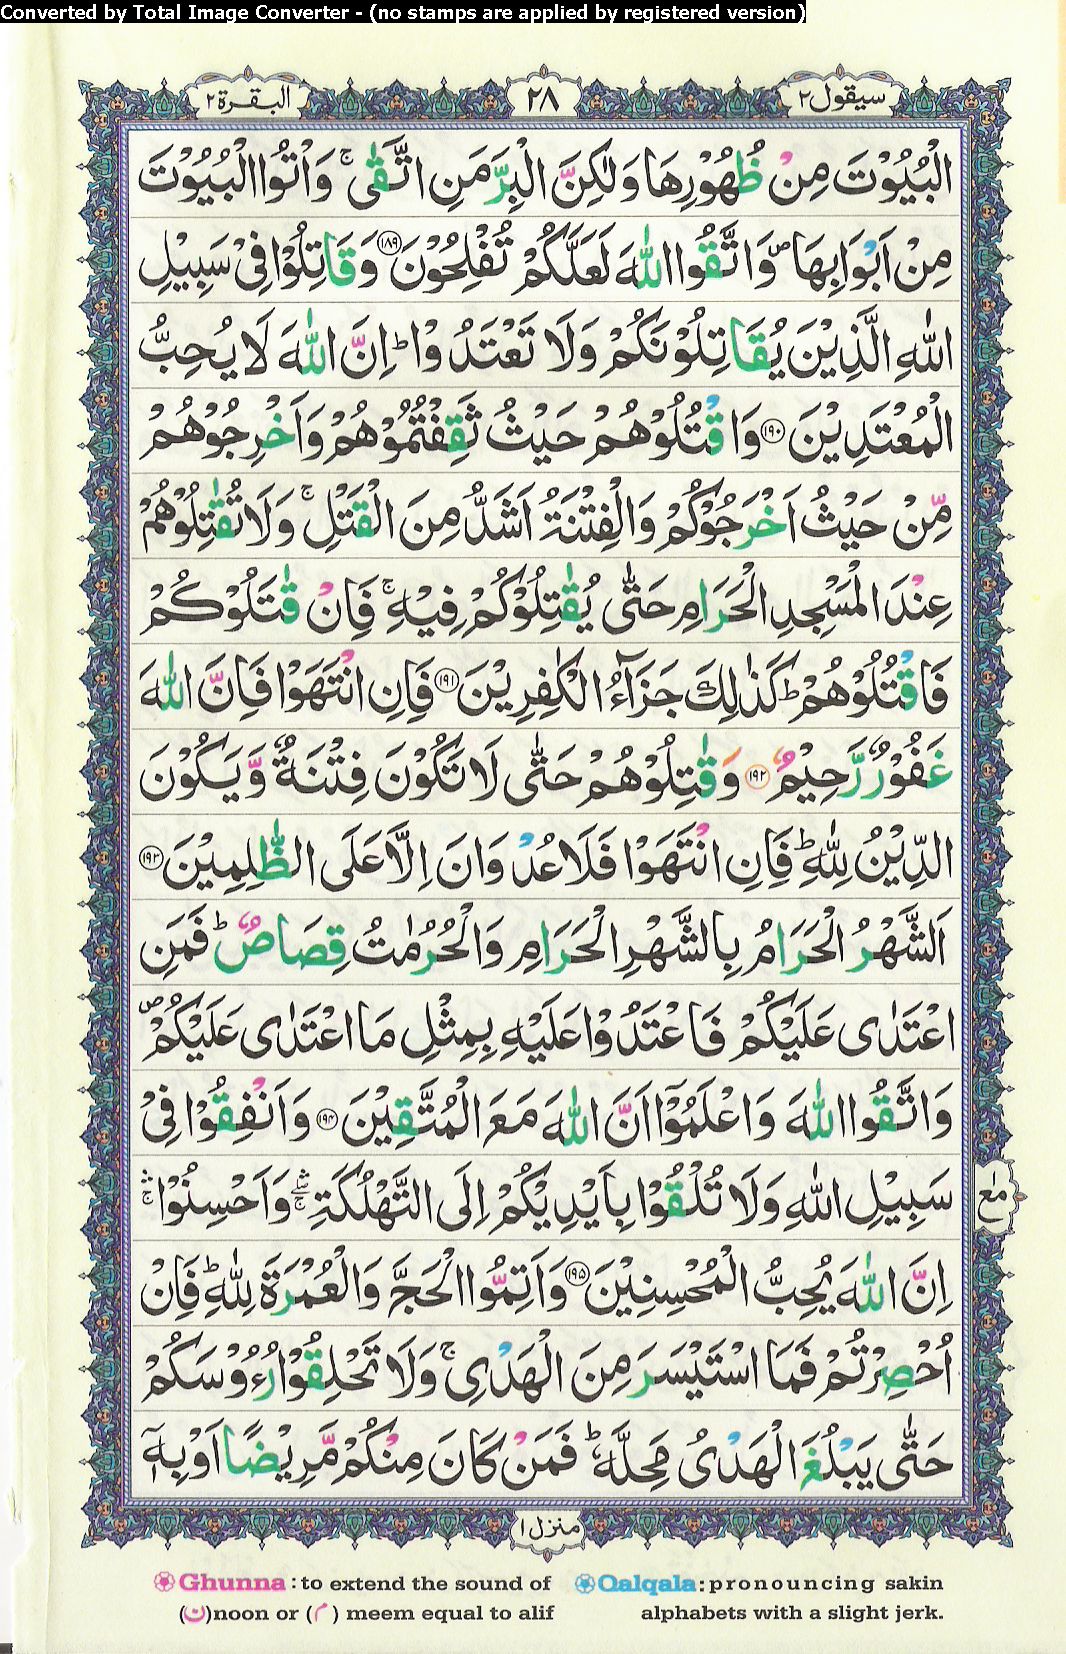 Converted by Total Image Converter - (no stamps are applied by registered version)
سيقول ٢
٢٨
البقرة ٢
الْبُيُوْتَ مِنْ ظُهُوْرِهَا وَلٰكِنَّ الْبِرَّ مَنِ اتَّقٰى ۚ وَاْتُوا الْبُيُوْتَ
مِنْ اَبْوَابِهَا ۪ وَاتَّقُوا اللّٰهَ لَعَلَّكُمْ تُفْلِحُوْنَ ﴿١٨٩﴾ وَقَاتِلُوْا فِيْ سَبِيْلِ
اللّٰهِ الَّذِيْنَ يُقَاتِلُوْنَكُمْ وَلَا تَعْتَدُوْا ؕ اِنَّ اللّٰهَ لَا يُحِبُّ
الْمُعْتَدِيْنَ ﴿١٩٠﴾ وَاقْتُلُوْهُمْ حَيْثُ ثَقِفْتُمُوْهُمْ وَاَخْرِجُوْهُمْ
مِّنْ حَيْثُ اَخْرَجُوْكُمْ وَالْفِتْنَةُ اَشَدُّ مِنَ الْقَتْلِ ۚ وَلَا تُقٰتِلُوْهُمْ
عِنْدَ الْمَسْجِدِ الْحَرَامِ حَتّٰى يُقٰتِلُوْكُمْ فِيْهِ ۚ فَاِنْ قٰتَلُوْكُمْ
فَاقْتُلُوْهُمْ ؕ كَذٰلِكَ جَزَآءُ الْكٰفِرِيْنَ ﴿١٩١﴾ فَاِنِ انْتَهَوْا فَاِنَّ اللّٰهَ
غَفُوْرٌ رَّحِيْمٌ ﴿١٩٢﴾ وَقٰتِلُوْهُمْ حَتّٰى لَا تَكُوْنَ فِتْنَةٌ وَّيَكُوْنَ
الدِّيْنُ لِلّٰهِ ؕ فَاِنِ انْتَهَوْا فَلَا عُدْوَانَ اِلَّا عَلَى الظّٰلِمِيْنَ ﴿١٩٣﴾
اَلشَّهْرُ الْحَرَامُ بِالشَّهْرِ الْحَرَامِ وَالْحُرُمٰتُ قِصَاصٌ ؕ فَمَنِ
اعْتَدٰى عَلَيْكُمْ فَاعْتَدُوْا عَلَيْهِ بِمِثْلِ مَا اعْتَدٰى عَلَيْكُمْ ۪
وَاتَّقُوا اللّٰهَ وَاعْلَمُوْٓا اَنَّ اللّٰهَ مَعَ الْمُتَّقِيْنَ ﴿١٩٤﴾ وَاَنْفِقُوْا فِيْ
سَبِيْلِ اللّٰهِ وَلَا تُلْقُوْا بِاَيْدِيْكُمْ اِلَى التَّهْلُكَةِ ۛۚ وَاَحْسِنُوْا ۛۚ
مع
اِنَّ اللّٰهَ يُحِبُّ الْمُحْسِنِيْنَ ﴿١٩٥﴾ وَاَتِمُّوا الْحَجَّ وَالْعُمْرَةَ لِلّٰهِ ؕ فَاِنْ
اُحْصِرْتُمْ فَمَا اسْتَيْسَرَ مِنَ الْهَدْيِ ۚ وَلَا تَحْلِقُوْا رُءُوْسَكُمْ
حَتّٰى يَبْلُغَ الْهَدْيُ مَحِلَّهٗ ؕ فَمَنْ كَانَ مِنْكُمْ مَّرِيْضًا اَوْ بِهٖٓ
منزل ١
Ghunna : to extend the sound of (ن)noon or (م) meem equal to alif
Qalqala: pronouncing sakin alphabets with a slight jerk.